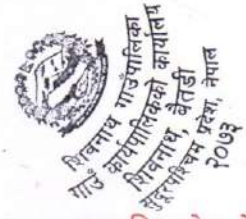 शिवनाथ गाउँपालिका
गाउँ कार्यपालिकको कार्यालय
शिवनाथ, बैतडी
सुदूरपश्चिम प्रदेश, नेपाल
२०७३